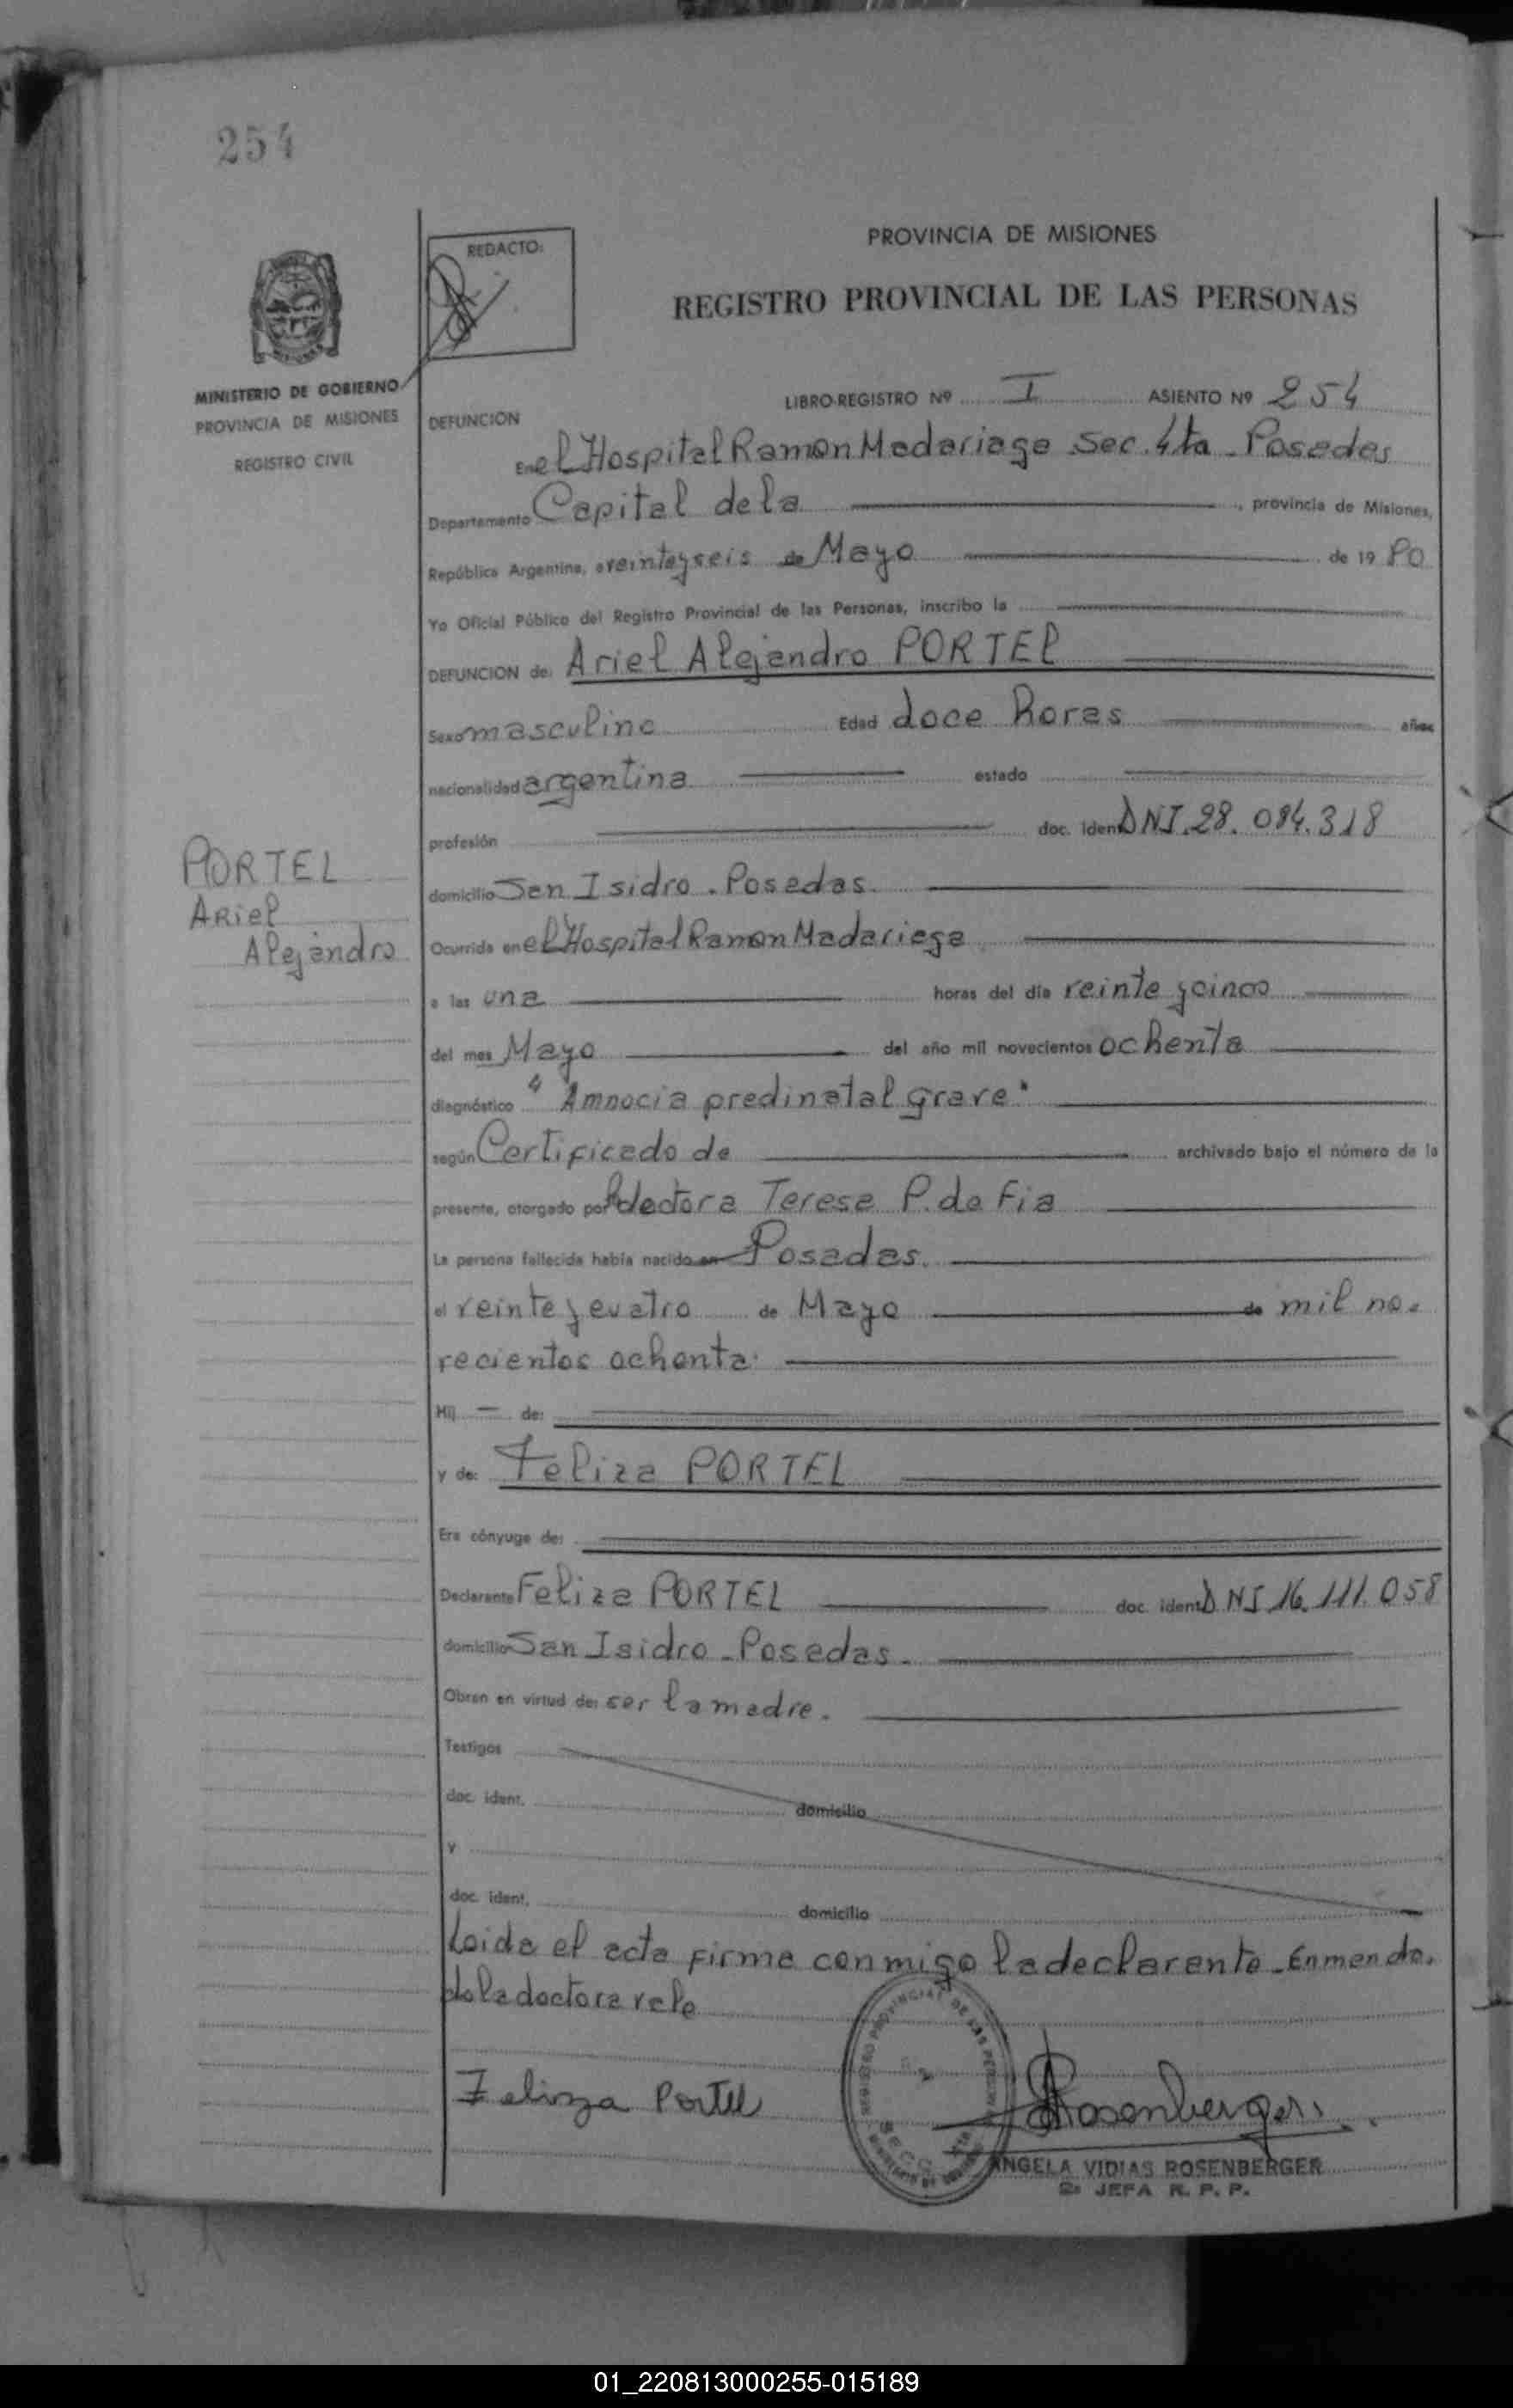 254
PROVINCIA DE MISIONES
REDACTO:
REGISTRO PROVINCIAL DE LAS PERSONAS
MINISTERIO DE GOBIERNO
PROVINCIA DE MISIONES
REGISTRO CIVIL
LIBRO-REGISTRO Nº I ASIENTO Nº 254
DEFUNCION
En el Hospital Ramon Madariaga Sec. 4ta - Posadas
Departamento Capital de la, provincia de Misiones,
República Argentina, a veinteyseis de Mayo de 19 80
Yo Oficial Público del Registro Provincial de las Personas, inscribo la
DEFUNCION de: Ariel Alejandro PORTEL
Sexo masculino Edad doce horas años
nacionalidad argentina estado
profesión doc. ident. DNI. 28. 084. 318
PORTEL
Ariel
Alejandro
domicilio San Isidro . Posadas.
Ocurrida en el Hospital Ramon Madariaga
a las una horas del día veinte y cinco
del mes Mayo del año mil novecientos ochenta
diagnóstico "Amnocia predinatal grave"
según Certificado de archivado bajo el número de la
presente, otorgado por la doctora Teresa P. de Fia
La persona fallecida había nacido en Posadas.
el veinte y cuatro de Mayo de mil no-
vecientos ochenta.
Hij — de:
y de: Feliza PORTEL
Era cónyuge de:
Declarante Feliza PORTEL doc. ident. DNI 16. 111. 058
domicilio San Isidro - Posadas.
Obran en virtud de: ser la madre.
Testigos
doc. ident. domicilio
y
doc. ident. domicilio
Leida el acta firma conmigo la declarante. Enmenda-
do la doctora vale
Felinza Portel
Rosenberger
REGISTRO PROVINCIAL DE LAS PERSONAS
ANGELA VIDIAS ROSENBERGER
2ª JEFA R. P. P.
01_220813000255-015189